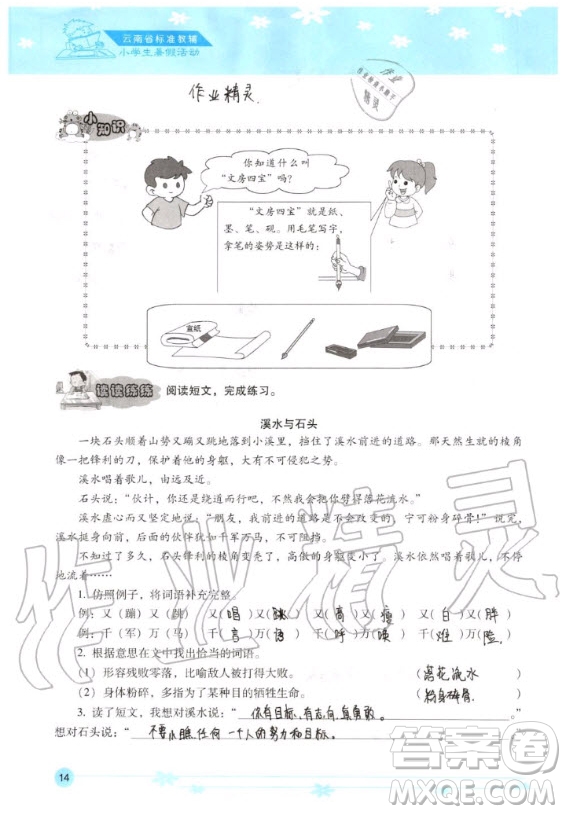 云南省标准教辅
小学生暑假活动
作业精灵
作业
精灵
小知识
你知道什么叫
“文房四宝”吗？
“文房四宝”就是纸、
墨、笔、砚。用毛笔写字，
拿笔的姿势是这样的：
宣纸
读读练练 阅读短文，完成练习。
溪水与石头
一块石头顺着山势又蹦又跳地落到小溪里，挡住了溪水前进的道路。那天然生就的棱角
像一把锋利的刀，保护着他的身躯，大家都远远地躲着他。
溪水唱着歌儿，由远及近。
石头说：“伙计，你还是绕道而行吧，不然我会把你劈得落花流水。”
溪水虚心而又坚定地说：“朋友，我们前进的道路是不会改变的，宁可粉身碎骨！”说完，
溪水挺身向前，后面的伙伴犹如千军万马，不可阻挡。
不知过了多久，石头锋利的棱角变秃了，高昂的身躯变小了，溪水依然唱着歌儿，不停
地流着……
1. 仿照例子，将词语补充完整。
例：又（蹦）又（跳） 又（唱）又（跳） 又（高）又（瘦） 又（白）又（胖）
例：千（军）万（马） 千（言）万（语） 千（呼）万（唤） 千（难）万（险）
2. 根据意思在文中找出恰当的词语。
（1）形容残败零落，比喻敌人被打得大败。 （落花流水）
（2）身体粉碎，多指为了某种目的牺牲生命。 （粉身碎骨）
3. 读了短文，我想对溪水说：“ 你有目标，有志向，真勇敢。 ”
想对石头说：“ 不要小瞧任何一个人的努力和目标。 ”
14
作业精灵
答案圈
MXQE.COM